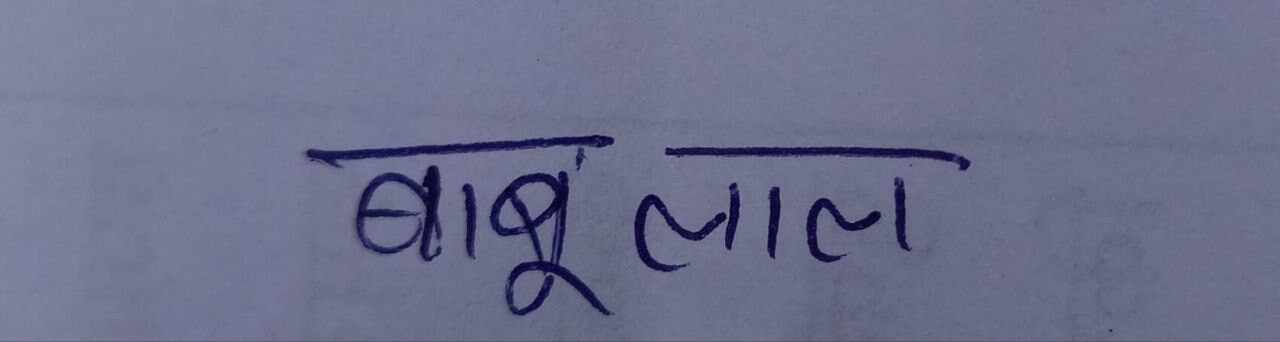 बाबू लाल